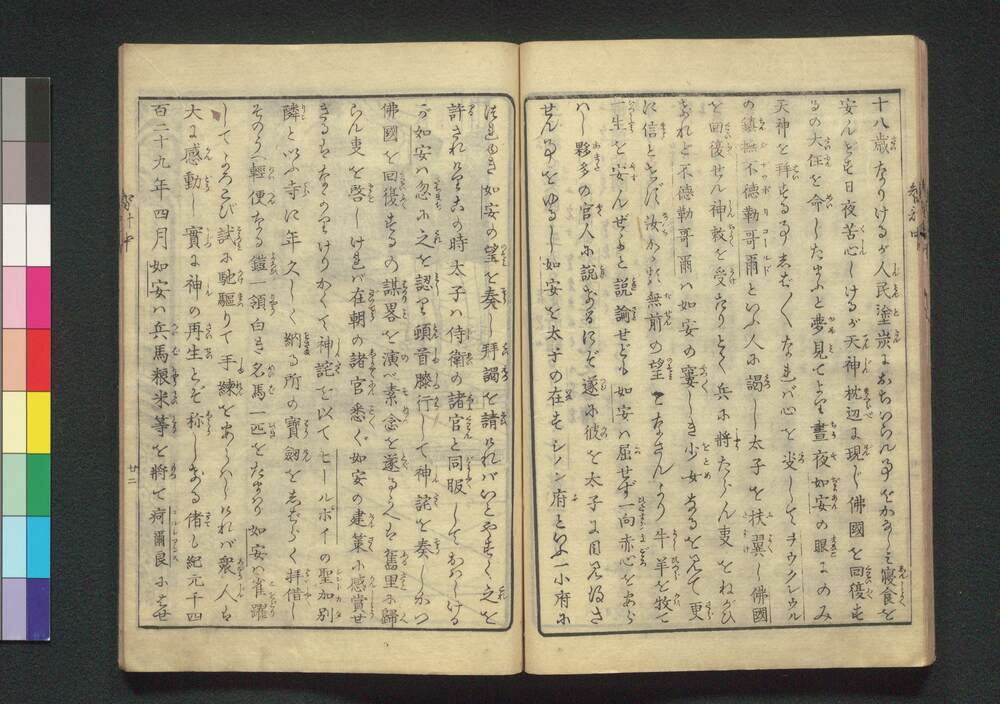 十八歳なりけるが人民塗炭におちいらん事をかなしミ寝食を
安ンぜず日夜苦心しけるが天神枕辺に現じ佛國を回復す
るの大任を命したまふと夢見てより晝夜如安の眼にのみ
天神を拝する事しば〱なれバ心を決してヲウクレウル
の鎮撫不德勒哥爾といふ人に謁し太子を扶翼し佛國
を回復せん神敕を受たりとく兵に將たらん事をねがひ
けれど不德勒哥爾ハ如安の窶しき少女なるを見て更
に信とせず汝が如き無前の望ミをなさんより牛羊を牧て
一生を安んぜよと説諭せども如安ハ屈せず一向赤心をあら
ハし夥多の官人に説けるにぞ遂に彼を太子に目見得さ
せん事をゆるし如安を太子の在すシノン府といふ一小府に
如安の望を奏し拝謁を請けれバいとやすく之を
許されけり此の時太子ハ侍衛の諸官と同服しておハしける
が如安ハ忽に之を認め頭首膝行して神詫を奏しかつ
佛國を回復するの謀畧を演べ素念を遂るうへも舊里に歸
らん事を啓しけれバ在朝の諸官悉く如安の建策に感賞せ
ざるもなかりけりかくて神詫を以てヒールボイの聖加別
隣といふ寺に年久しく納る所の寶劔をしばらく拝借し
そのうへ輕便なる鎧一領白き名馬一匹をたまハり如安ハ雀躍
してよろこび試に馳驅りて手練をあらハしけれバ衆人も
大に感動し實に神の再生とぞ称しあへる偖も紀元千四
百二十九年四月如安ハ兵馬粮米等を將て痾爾良にはせ
廿二